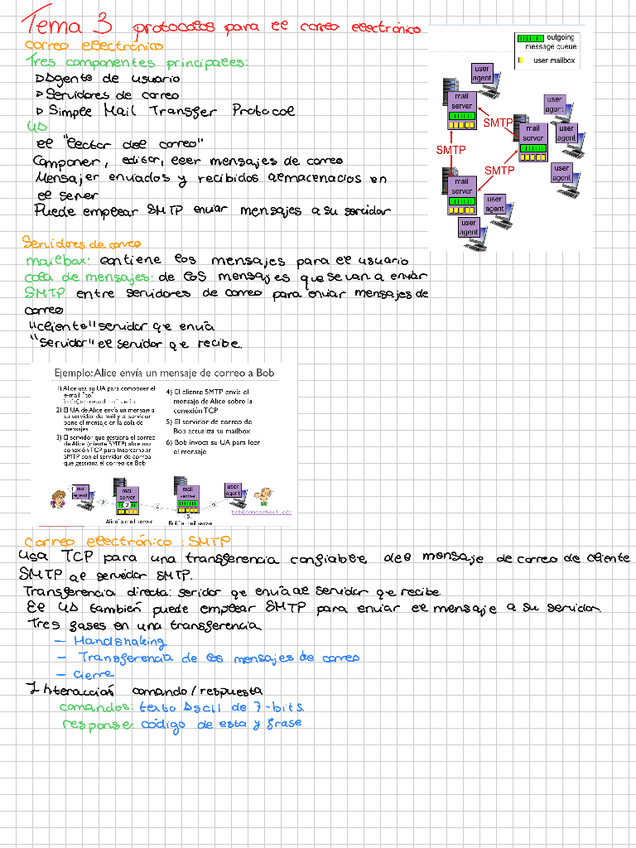 Tema 3 protocolos para el correo electrónico
correo electrónico
Tres componentes principales:
Agente de usuario
Servidores de correo
Simple Mail Transfer Protocol
UA
el "lector del correo"
Componer, editar, leer mensajes de correo
Mensajer enviados y recibidos almacenados en
el server
Puede empezar SMTP enviar mensajes a su servidor
outgoing
message queue
user mailbox
user
agent
mail
server
user
agent
SMTP
mail
server
user
agent
SMTP
SMTP
user
agent
mail
server
user
agent
user
agent
Servidores de correo
mailbox: contiene los mensajes para el usuario
cola de mensajes: de los mensajes que se van a enviar
SMTP entre servidores de correo para enviar mensajes de
correo
"cliente" servidor qe envia
"servidor" el servidor qe recibe
Ejemplo: Alice envía un mensaje de correo a Bob
1) Alice usa su UA para componer el
e-mail "to"
2) El UA de Alice envía un mensaje a
su servidor de mail y el servidor
pone el mensaje en la cola de
mensajes
3) El servidor que gestiona el correo
de Alice (cliente SMTP) abre una
conexión TCP para intercambiar
SMTP con el servidor de correo
que gestiona el correo de Bob
4) El cliente SMTP envía el
mensaje de Alice sobre la
conexión TCP
5) El servidor de correo de
Bob actualiza su mailbox
6) Bob invoca su UA para leer
el mensaje
user
agent
mail
server
mail
server
user
agent
Alice's mail server
Bob's mail server
correo electrónico: SMTP
Usa TCP para una transferencia confiable, del mensaje de correo de cliente
SMTP al servidor SMTP.
Transferencia directa: seridor qe envía al servidor qe recibe
El UA también puede emplear SMTP para enviar el mensaje a su servidor
Tres fases en una transferencia
— Handshaking
— Transferencia de los mensajes de correo
— Cierre
Interacción comando/respuesta
comandos: texto Ascii de 7-bits
response: código de esta y frase